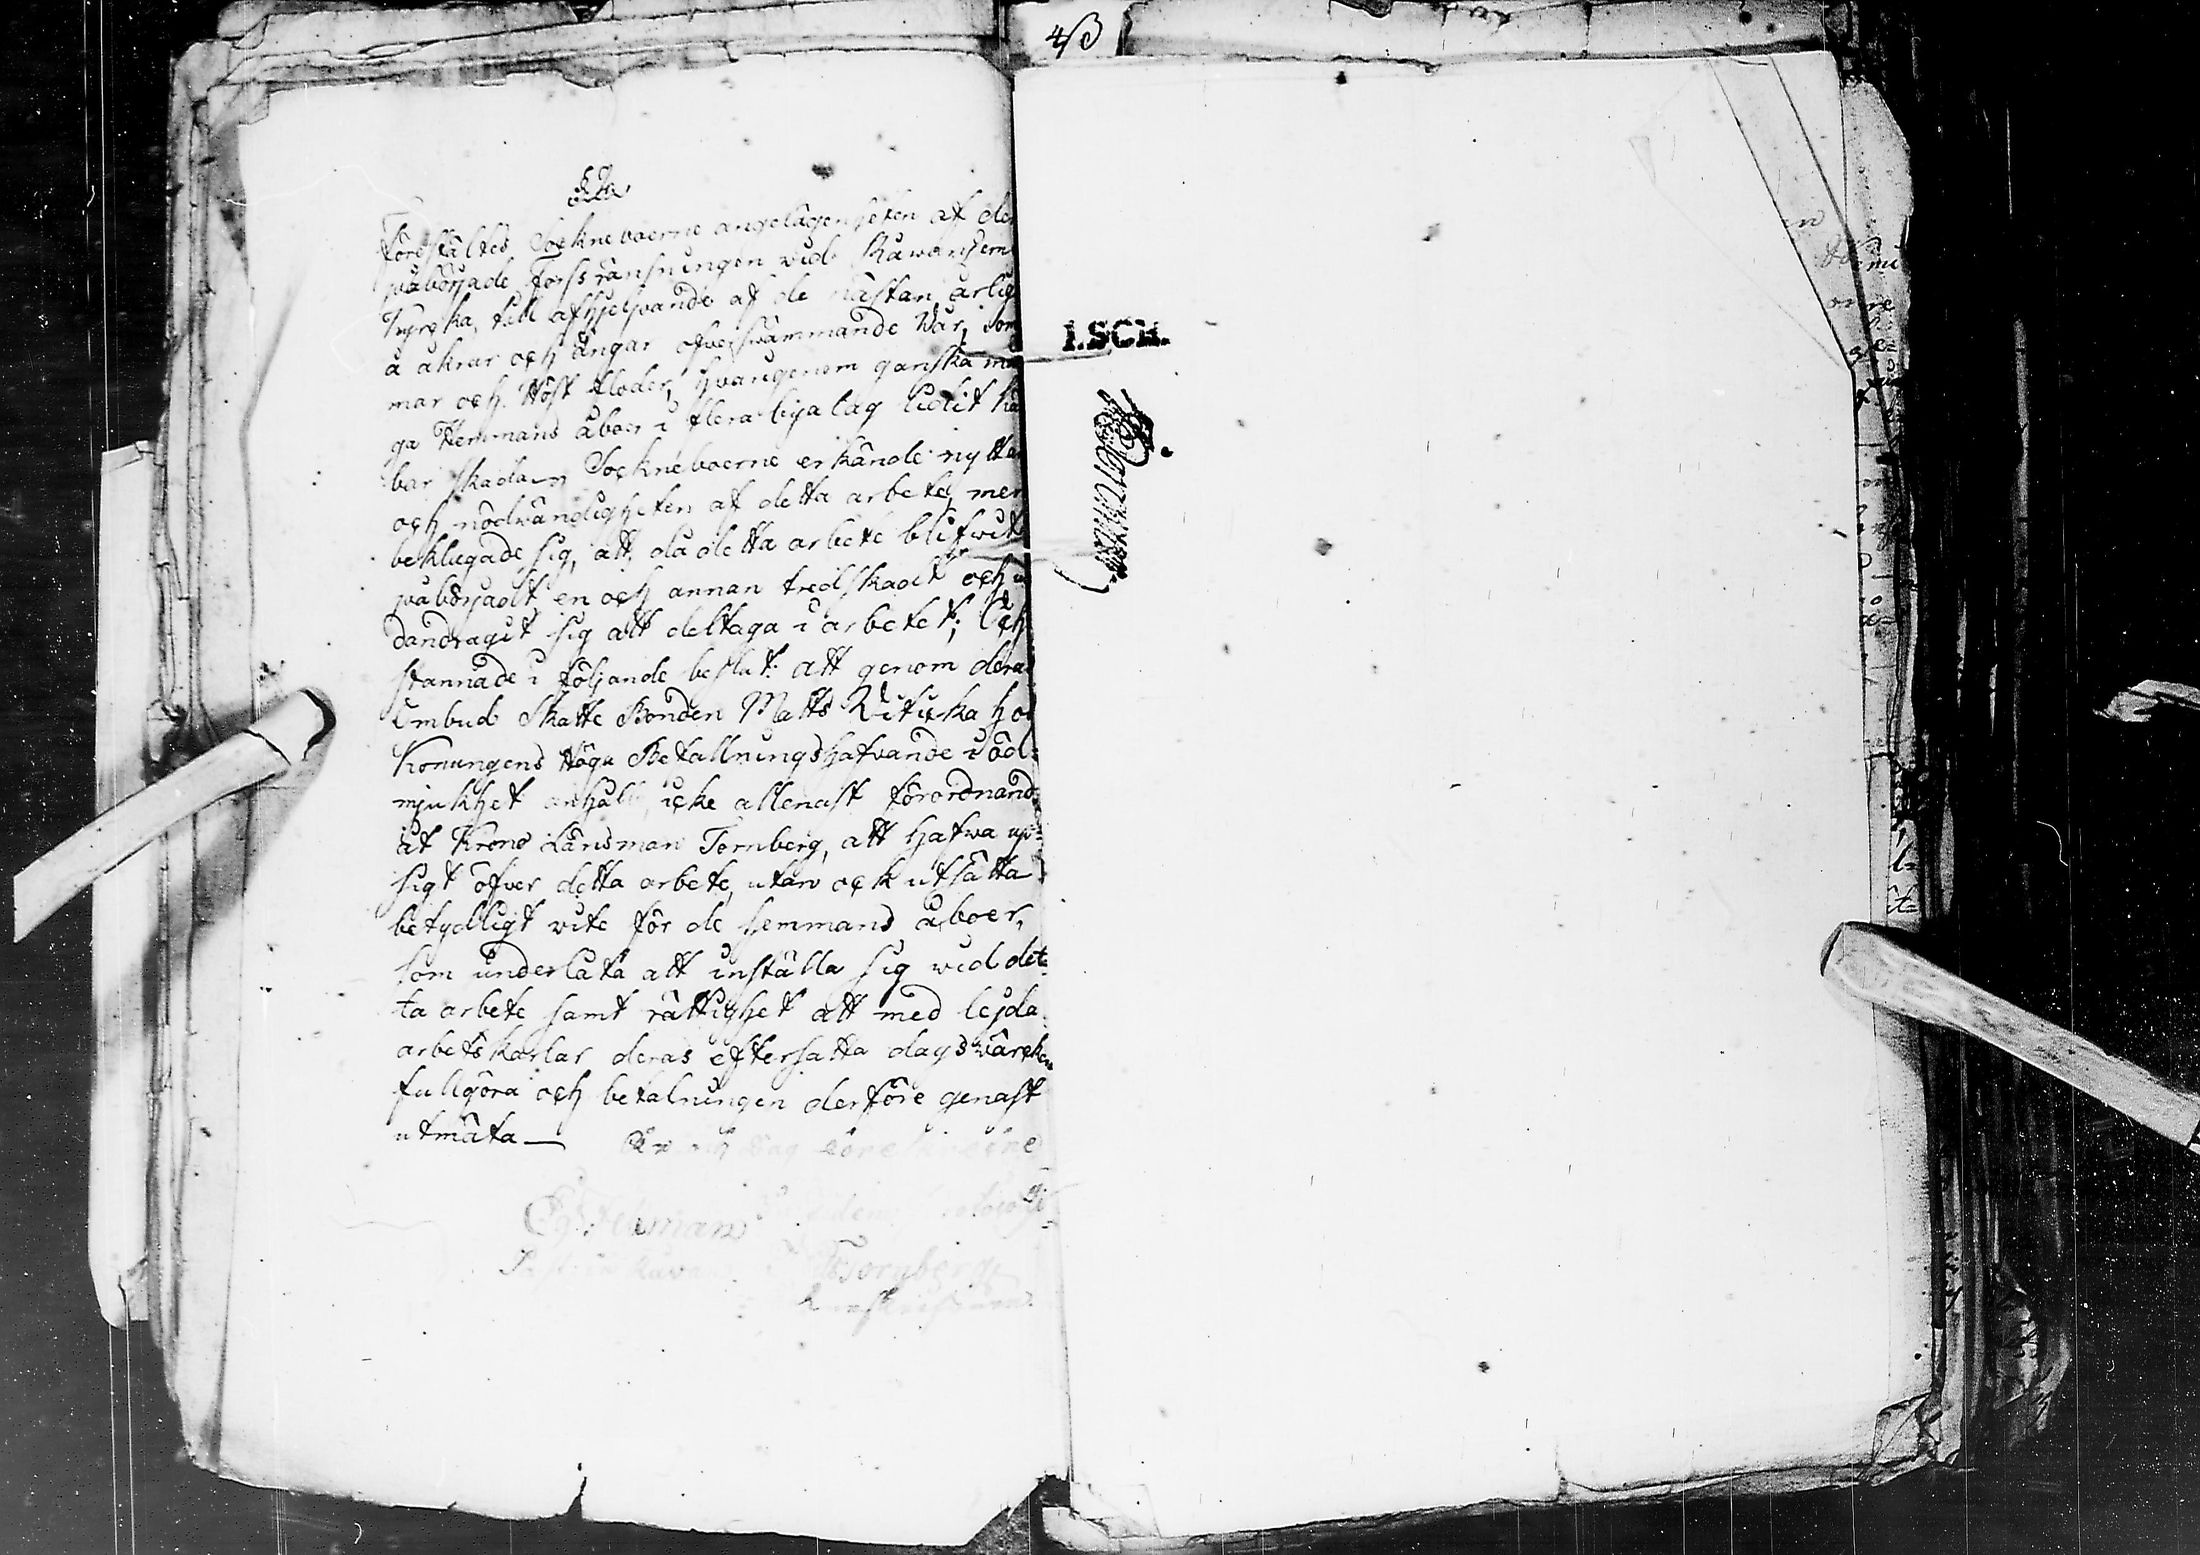 4/3
5 §
Förestältes Sockneboerne angelägenheten af den
påbörjade Forssränsningen vid
till afhjelpande af de nästan årlig
å åkrar och ängar öfversvämmande Vår, som
mar och Höst floder, hvarigenom ganska mån
ga Hemmans åboer i flera byalag lidit kän
bar skada. Sockneboerne erkände nyttan
och nödvändigheten af detta arbete, men
beklagade sig, att, då detta arbete blifvit
påbörjadt, en och annan tredskadt och un
dandragit sig att deltaga i arbetet; Och
stannade i följande beslut: att genom deras
Ombud Skatte Bonden Matts hos
Konungens Höga Befallningshafvande i öd=
mjukhet anhålla, icke allenast förordnande
åt Krono Länsman Tornberg, att hafva up=
sigt öfver detta arbete, utan ock utsätta
betydligt vite för de hemmans åboer,
som underlåta att inställa sig vid det=
ta arbete samt rättighet att med lejda
arbetskarlar deras eftersatta dagsvärcken
fullgöra och betalningen derföre genast
utmäta— År och dag som
Tornberg
I.SCH.